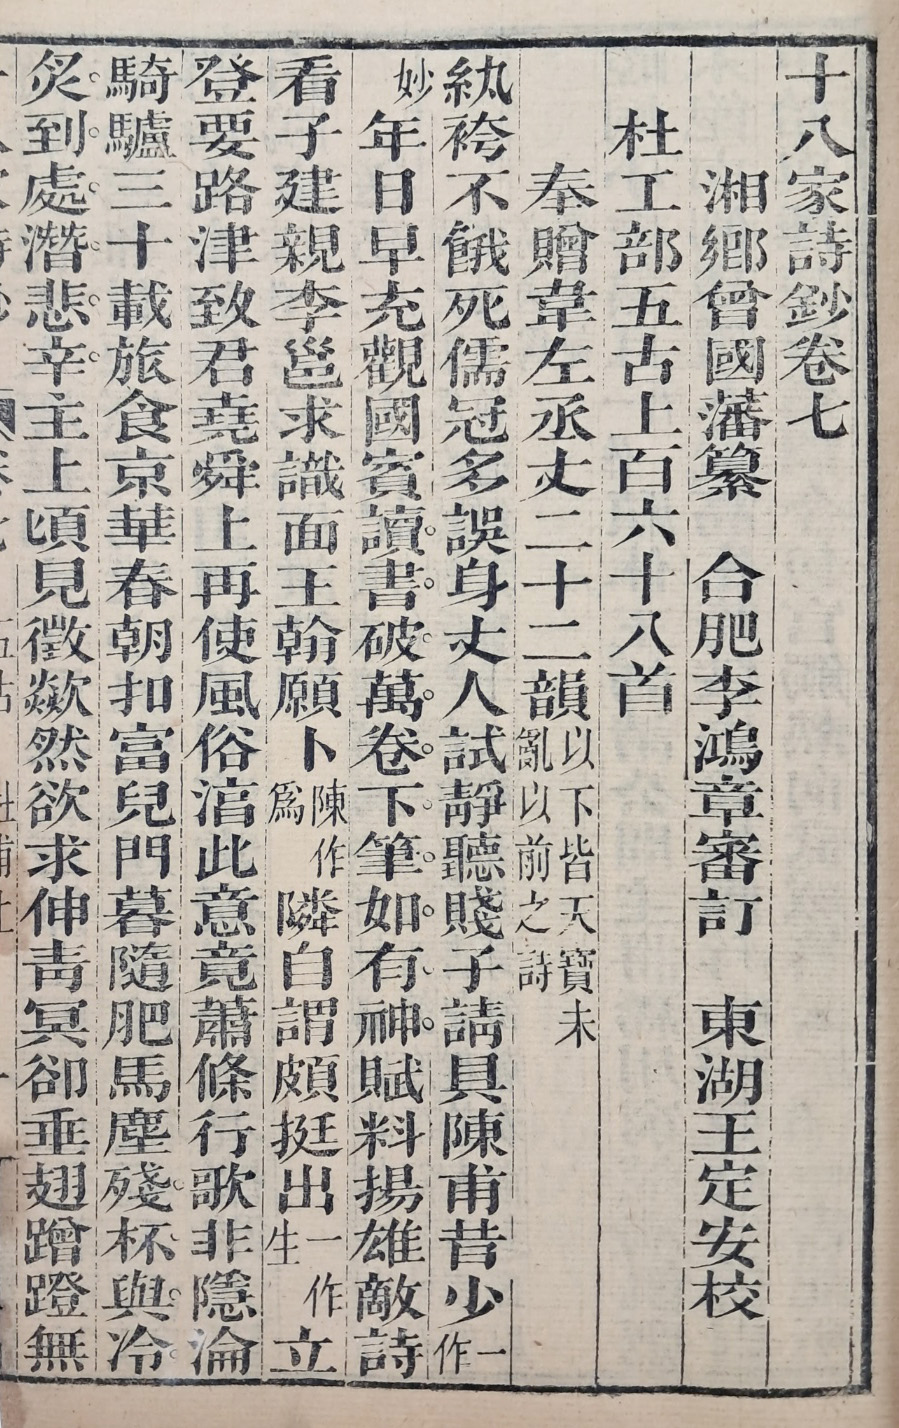 十八家詩鈔卷七
湘鄉曾國藩纂　合肥李鴻章審訂　東湖王定安校
杜工部五古上百六十八首
奉贈韋左丞丈二十二韻以下皆天寶未亂以前之詩
紈袴不餓死儒冠多誤身丈人試靜聽賤子請具陳甫昔少一作
妙年日早充觀國賓讀。書。破。萬。卷。下。筆。如。有。神。賦料揚雄敵詩
看子建親李邕求識面王翰願卜陳作爲隣自謂頗挺出一作生立
登要路津致君堯舜上再使風俗湻此意竟蕭條行歌非隱淪
騎驢三十載旅食京華春朝扣富兒門暮隨肥馬塵殘。杯。與。冷。
炙。到。處。潛。悲。辛。主上頃見徵歘然欲求伸青冥卻垂翅蹭蹬無